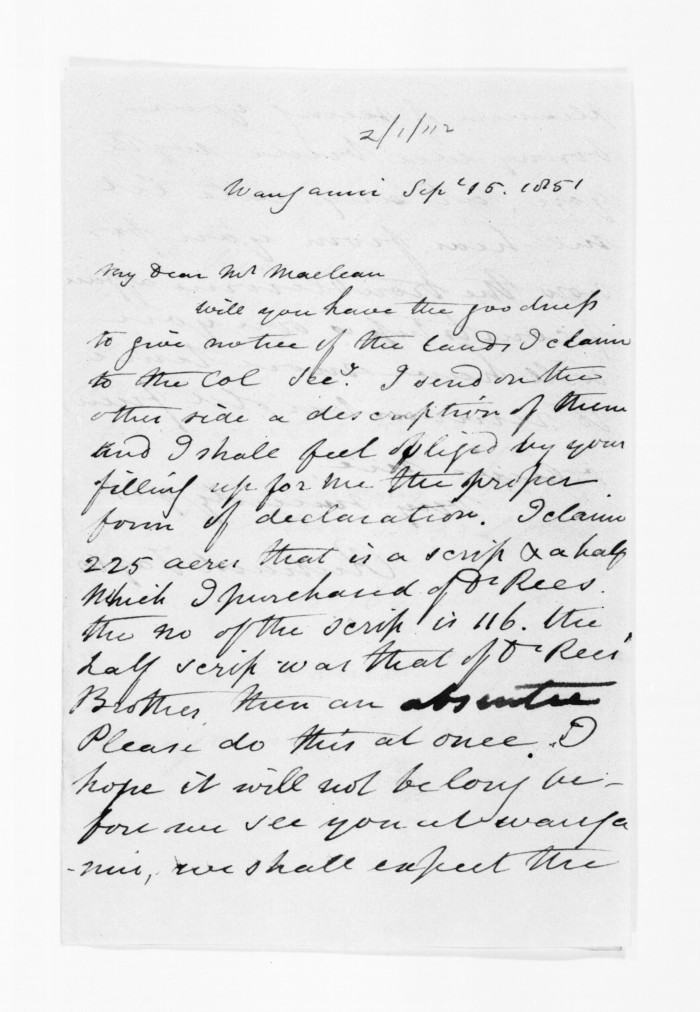 2/1/112
Wanganui Sept 15. 1851
My Dear Mr Maclean
will you have the goodness
to give notice of the lands I claim
to the Col Secy. I send on the
other side a description of them
and I shall feel obliged by your
filling up for me the proper
form of declaration. I claim
225 acres that is a scrip & a half
which I purchased of Dr Rees.
the no of the scrip is 116. the
half scrip was that of Dr Rees'
Brother then an absentee
Please do this at once. I
hope it will not be long be-
fore we see you at wanga
-nui, we shall expect the